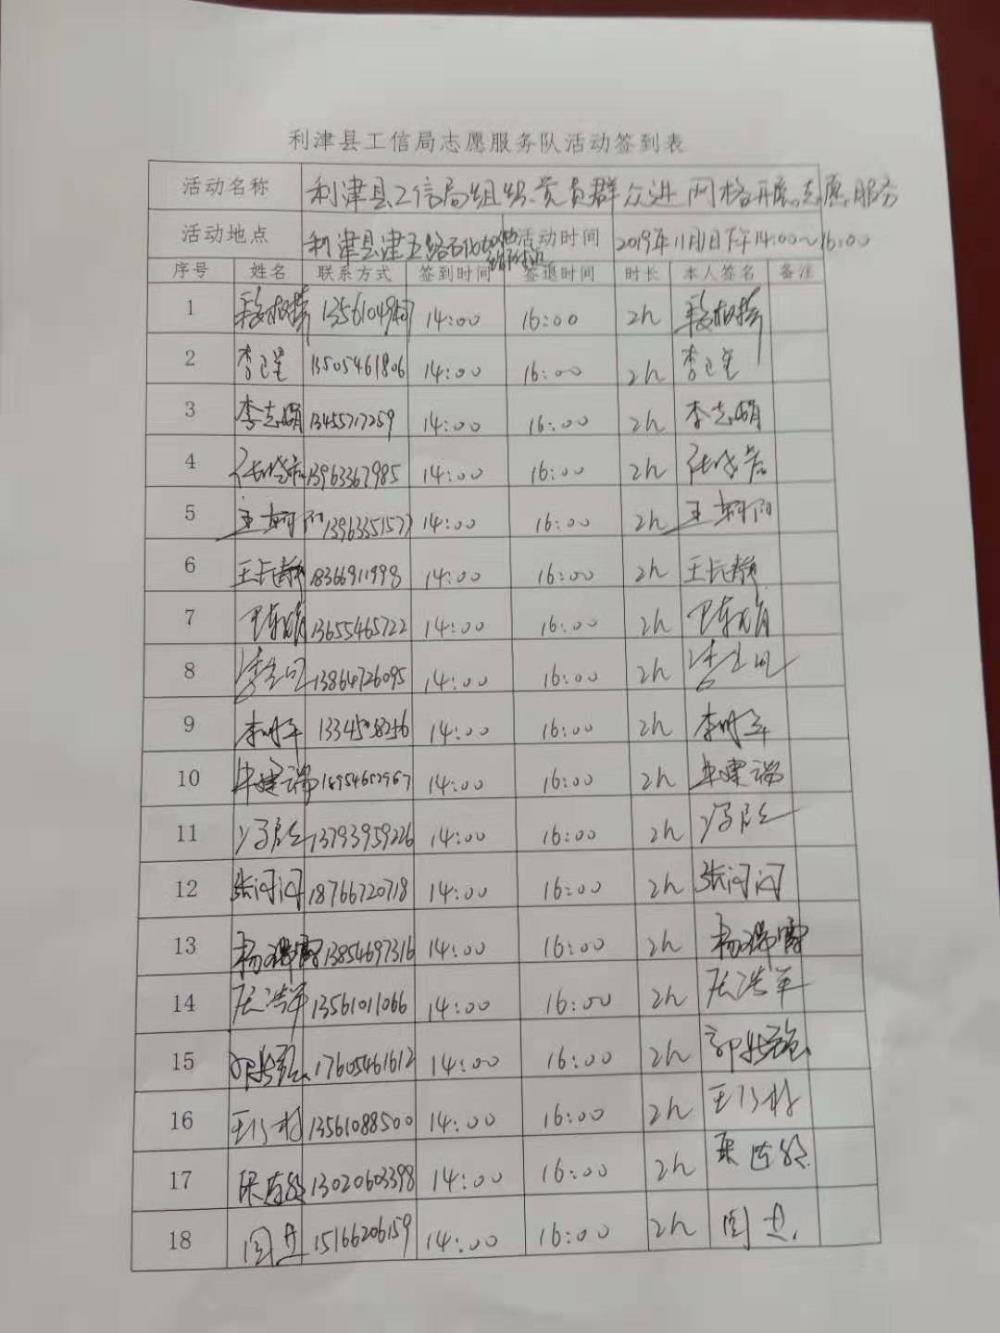 利津县工信局志愿服务队活动签到表
活动名称 利津县工信局组织党员群众进网格开展志愿服务
活动地点 利津县津五路 活动时间 2019年11月1日下午14:00~16:00
序号 姓名 联系方式 签到时间 签退时间 时长 本人签名 备注
1 14:00 16:00 2h
2 李卫星 13505461806 14:00 16:00 2h 李卫星
3 李志娟 13455717259 14:00 16:00 2h 李志娟
4 13963367985 14:00 16:00 2h
5 王 14:00 16:00 2h 王
6 王长静 18366911998 14:00 16:00 2h 王长静
7 13655465722 14:00 16:00 2h
8 13864726095 14:00 16:00 2h
9 李 14:00 16:00 2h 李
10 牟建瑞 14:00 16:00 2h 牟建瑞
11 13793959226 14:00 16:00 2h
12 张闪闪 18766720718 14:00 16:00 2h 张闪闪
13 杨瑞雪 13854697316 14:00 16:00 2h 杨瑞雪
14 张洪军 13561011066 14:00 16:00 2h 张洪军
15 17605461612 14:00 16:00 2h 郭
16 王 13561088500 14:00 16:00 2h 王
17 13020603398 14:00 16:00 2h
18 周 15166206159 14:00 16:00 2h 周